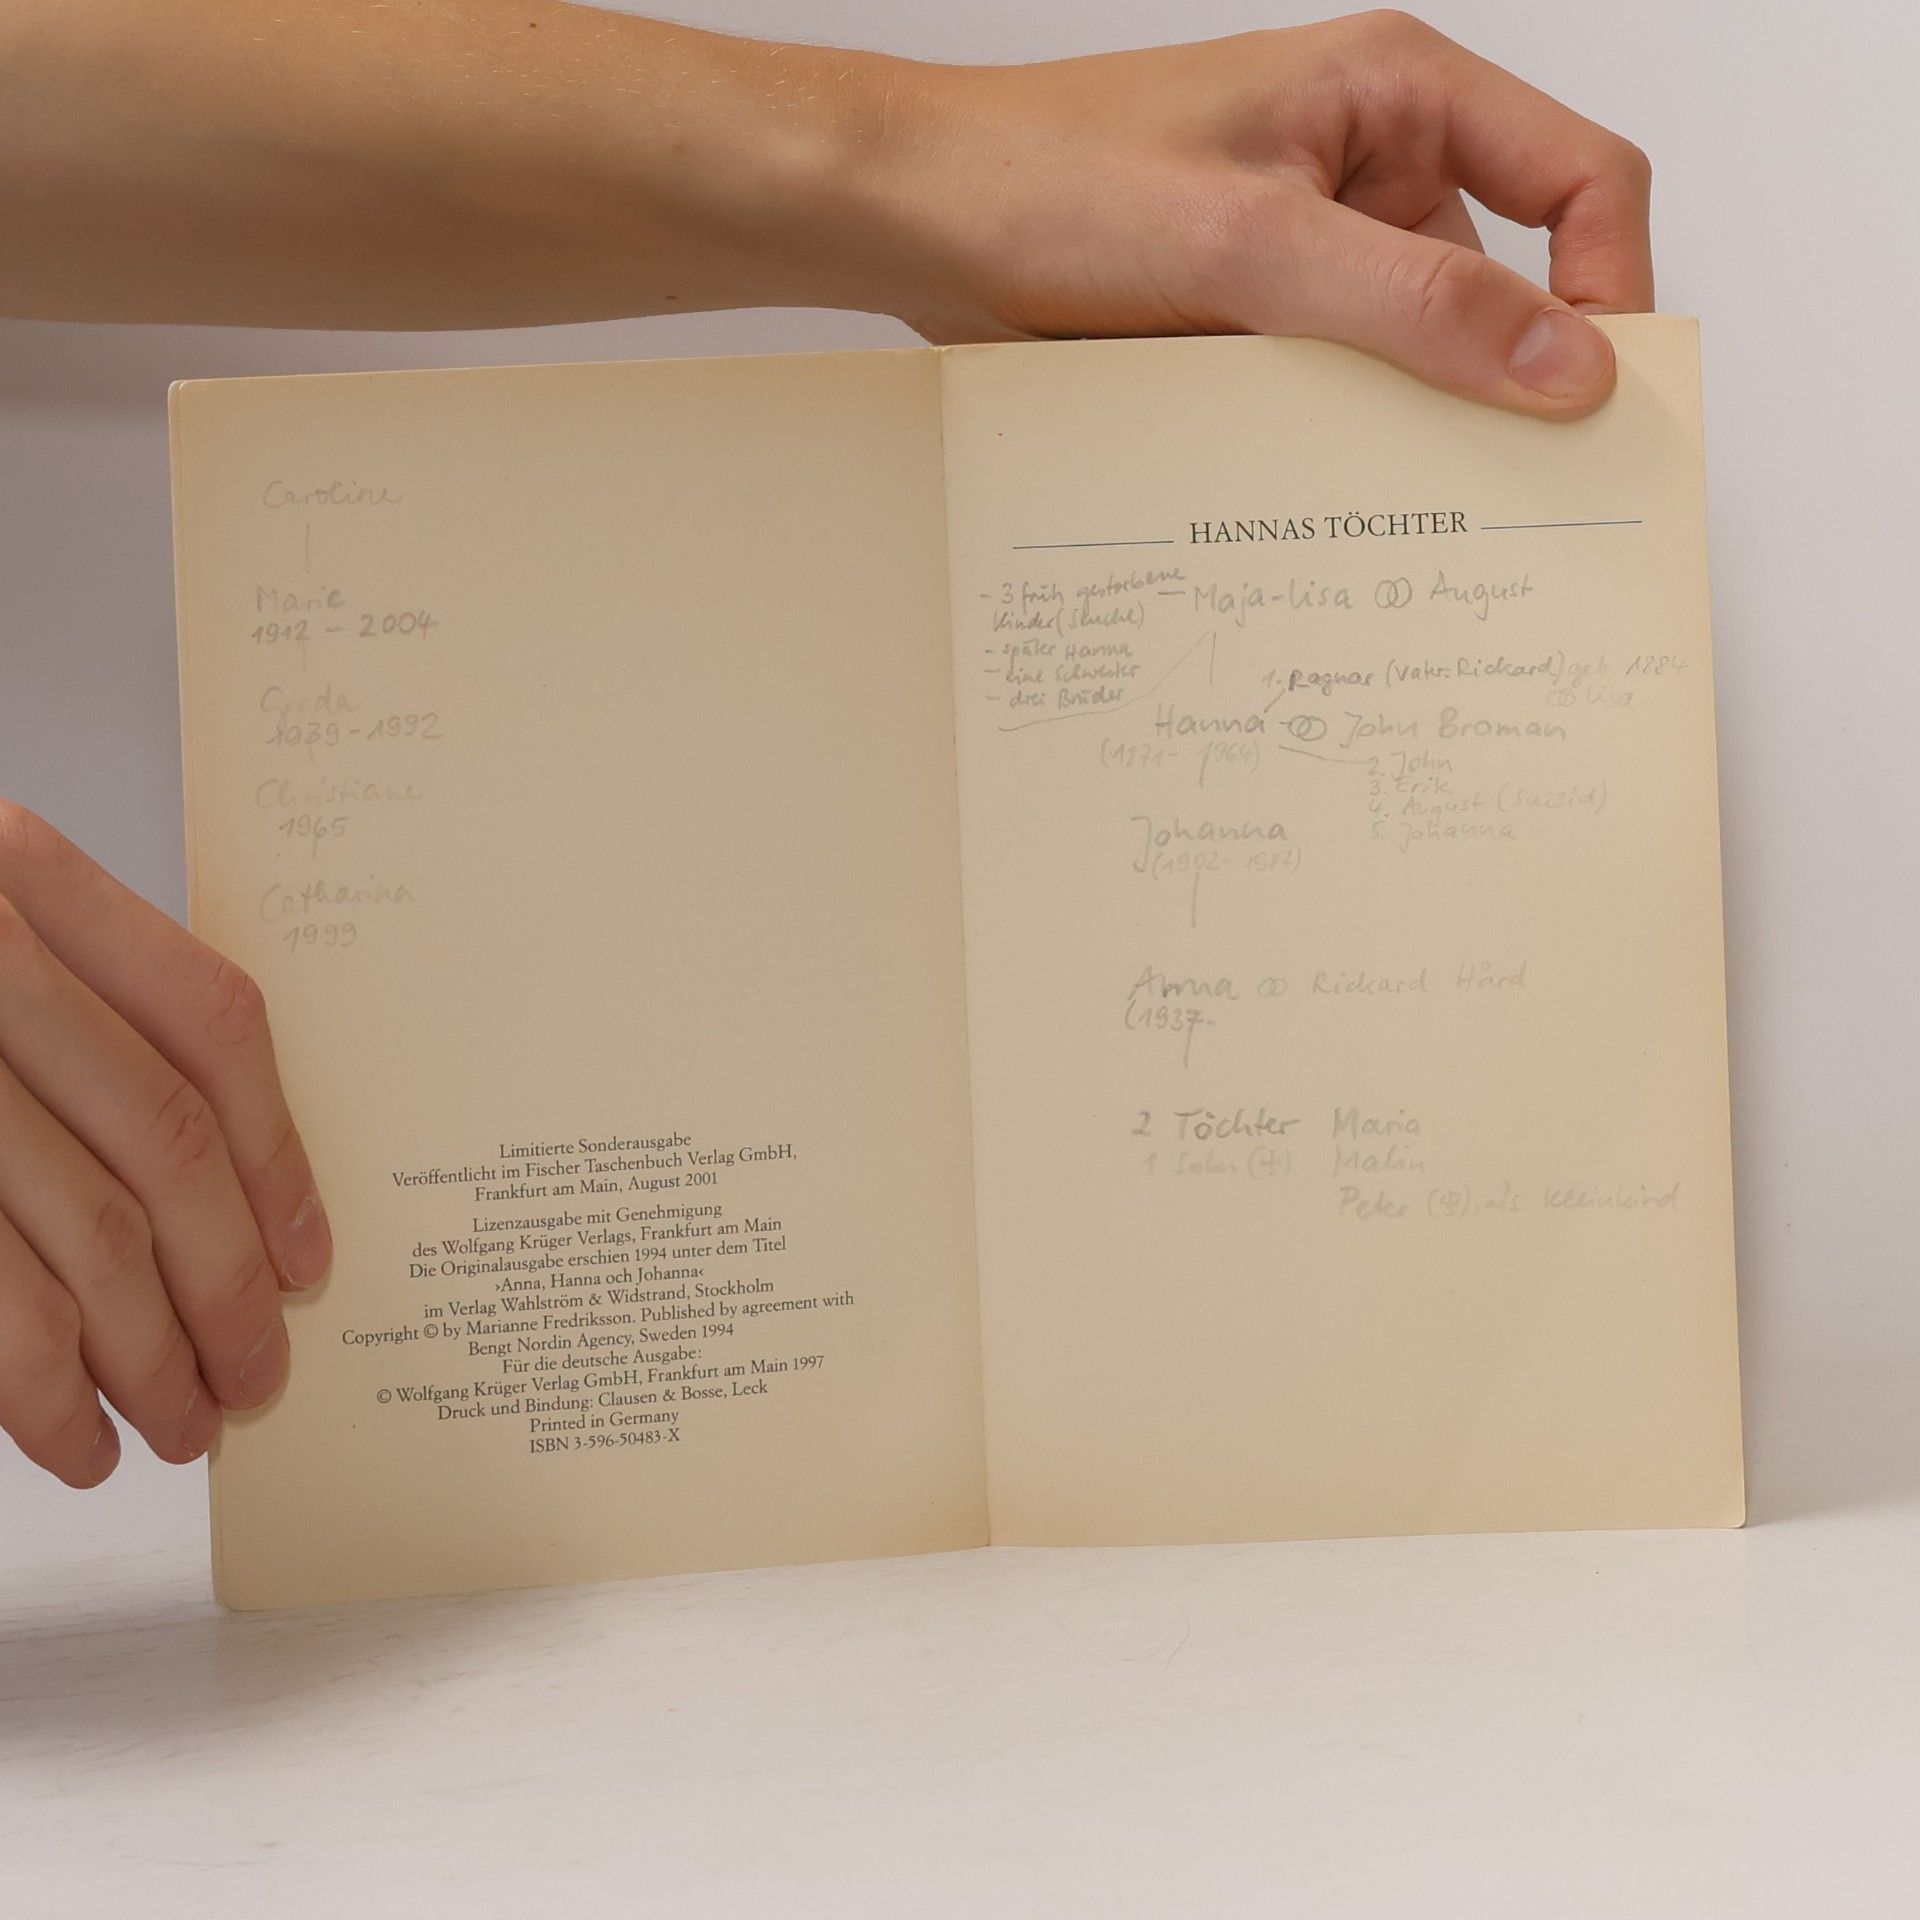 Caroline
Marie
1912 - 2004
Gerda
1939 - 1992
Christiane
1965
Catharina
1999
Limitierte Sonderausgabe
Veröffentlicht im Fischer Taschenbuch Verlag GmbH,
Frankfurt am Main, August 2001
Lizenzausgabe mit Genehmigung
des Wolfgang Krüger Verlags, Frankfurt am Main
Die Originalausgabe erschien 1994 unter dem Titel
›Anna, Hanna och Johanna‹
im Verlag Wahlström & Widstrand, Stockholm
Copyright © by Marianne Fredriksson. Published by agreement with
Bengt Nordin Agency, Sweden 1994
Für die deutsche Ausgabe:
© Wolfgang Krüger Verlag GmbH, Frankfurt am Main 1997
Druck und Bindung: Clausen & Bosse, Leck
Printed in Germany
ISBN 3-596-50483-X
HANNAS TÖCHTER
- 3 früh gestorbene
Kinder (Seuche)
- später Hanna
- eine Schwester
- drei Brüder
Maja-Lisa ⚭ August
1. Ragnar (Vater: Rickard) geb. 1884
⚭ Lisa
Hanna ⚭ John Broman
(1871 - 1964)
2. John
3. Erik
4. August (Suizid)
5. Johanna
Johanna
(1902 - 1987)
Anna ⚭ Rickard Hård
(1937-
2 Töchter Maria
1 Sohn (†) Malin
Peter (†), als Kleinkind